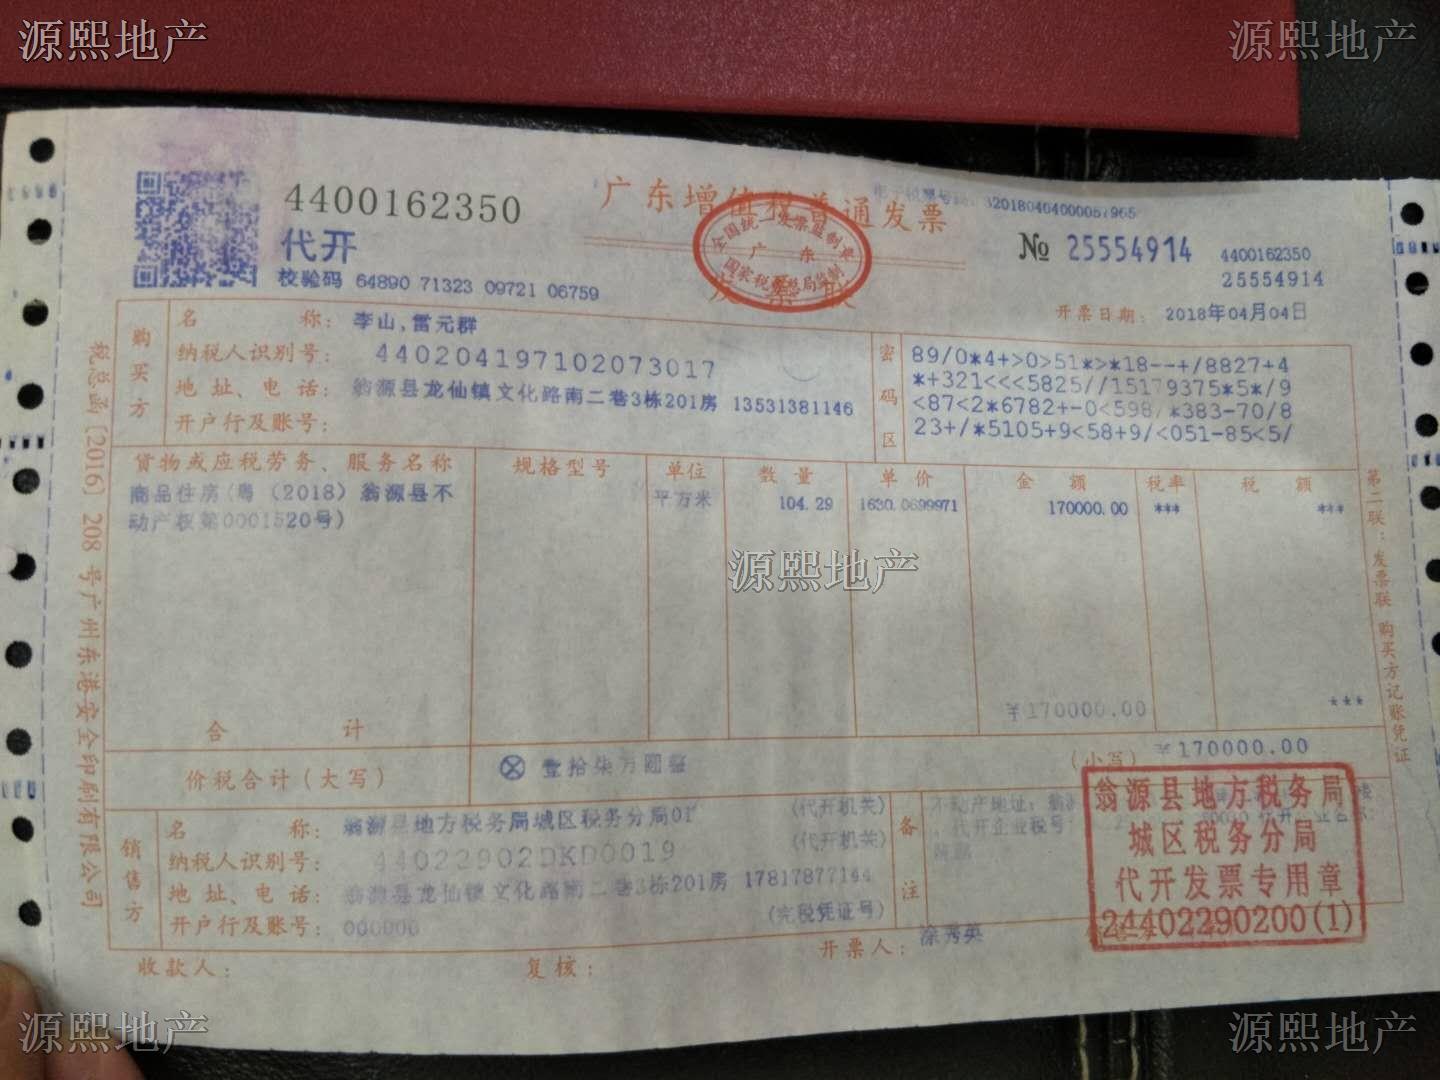 源熙地产
源熙地产
4400162350
广东增值税普通发票
代开
校验码 64890 71323 09721 06759
全国统一发票监制章
广 东
国家税务总局监制
发票联
№ 25554914
4400162350
25554914
开票日期: 2018年04月04日
购买方
名 称: 李山,雷元群
纳税人识别号: 440204197102073017
地 址、电 话: 翁源县龙仙镇文化路南二巷3栋201房 13531381146
开户行及账号:
密码区
89/0*4+>0>51*>*18--+/8827+4
*+321<<<5825//15179375*5*/9
<87<2*6782+-0<598/*383-70/8
23+/*5105+9<58+9/<051-85<5/
货物或应税劳务、服务名称 规格型号 单位 数 量 单 价 金 额 税率 税 额
商品住房(粤（2018）翁源县不 平方米 104.29 1630.0699971 170000.00 *** ***
动产权第0001520号)
源熙地产
合 计 ¥170000.00 ***
价税合计(大写) ⊗ 壹拾柒万圆整 (小写) ¥170000.00
销售方
名 称: 翁源县地方税务局城区税务分局01 (代开机关)
纳税人识别号: 44022902DKD0019 (代开机关)
地 址、电 话: 翁源县龙仙镇文化路南二巷3栋201房 17817877144
开户行及账号: 000000 (完税凭证号)
备注
不动产地址:
代开企业税号
翁源县地方税务局
城区税务分局
代开发票专用章
24402290200(1)
收款人: 复核: 开票人: 涂秀英
税总函〔2016〕208号广州东港安全印刷有限公司
第二联:发票联 购买方记账凭证
源熙地产
源熙地产